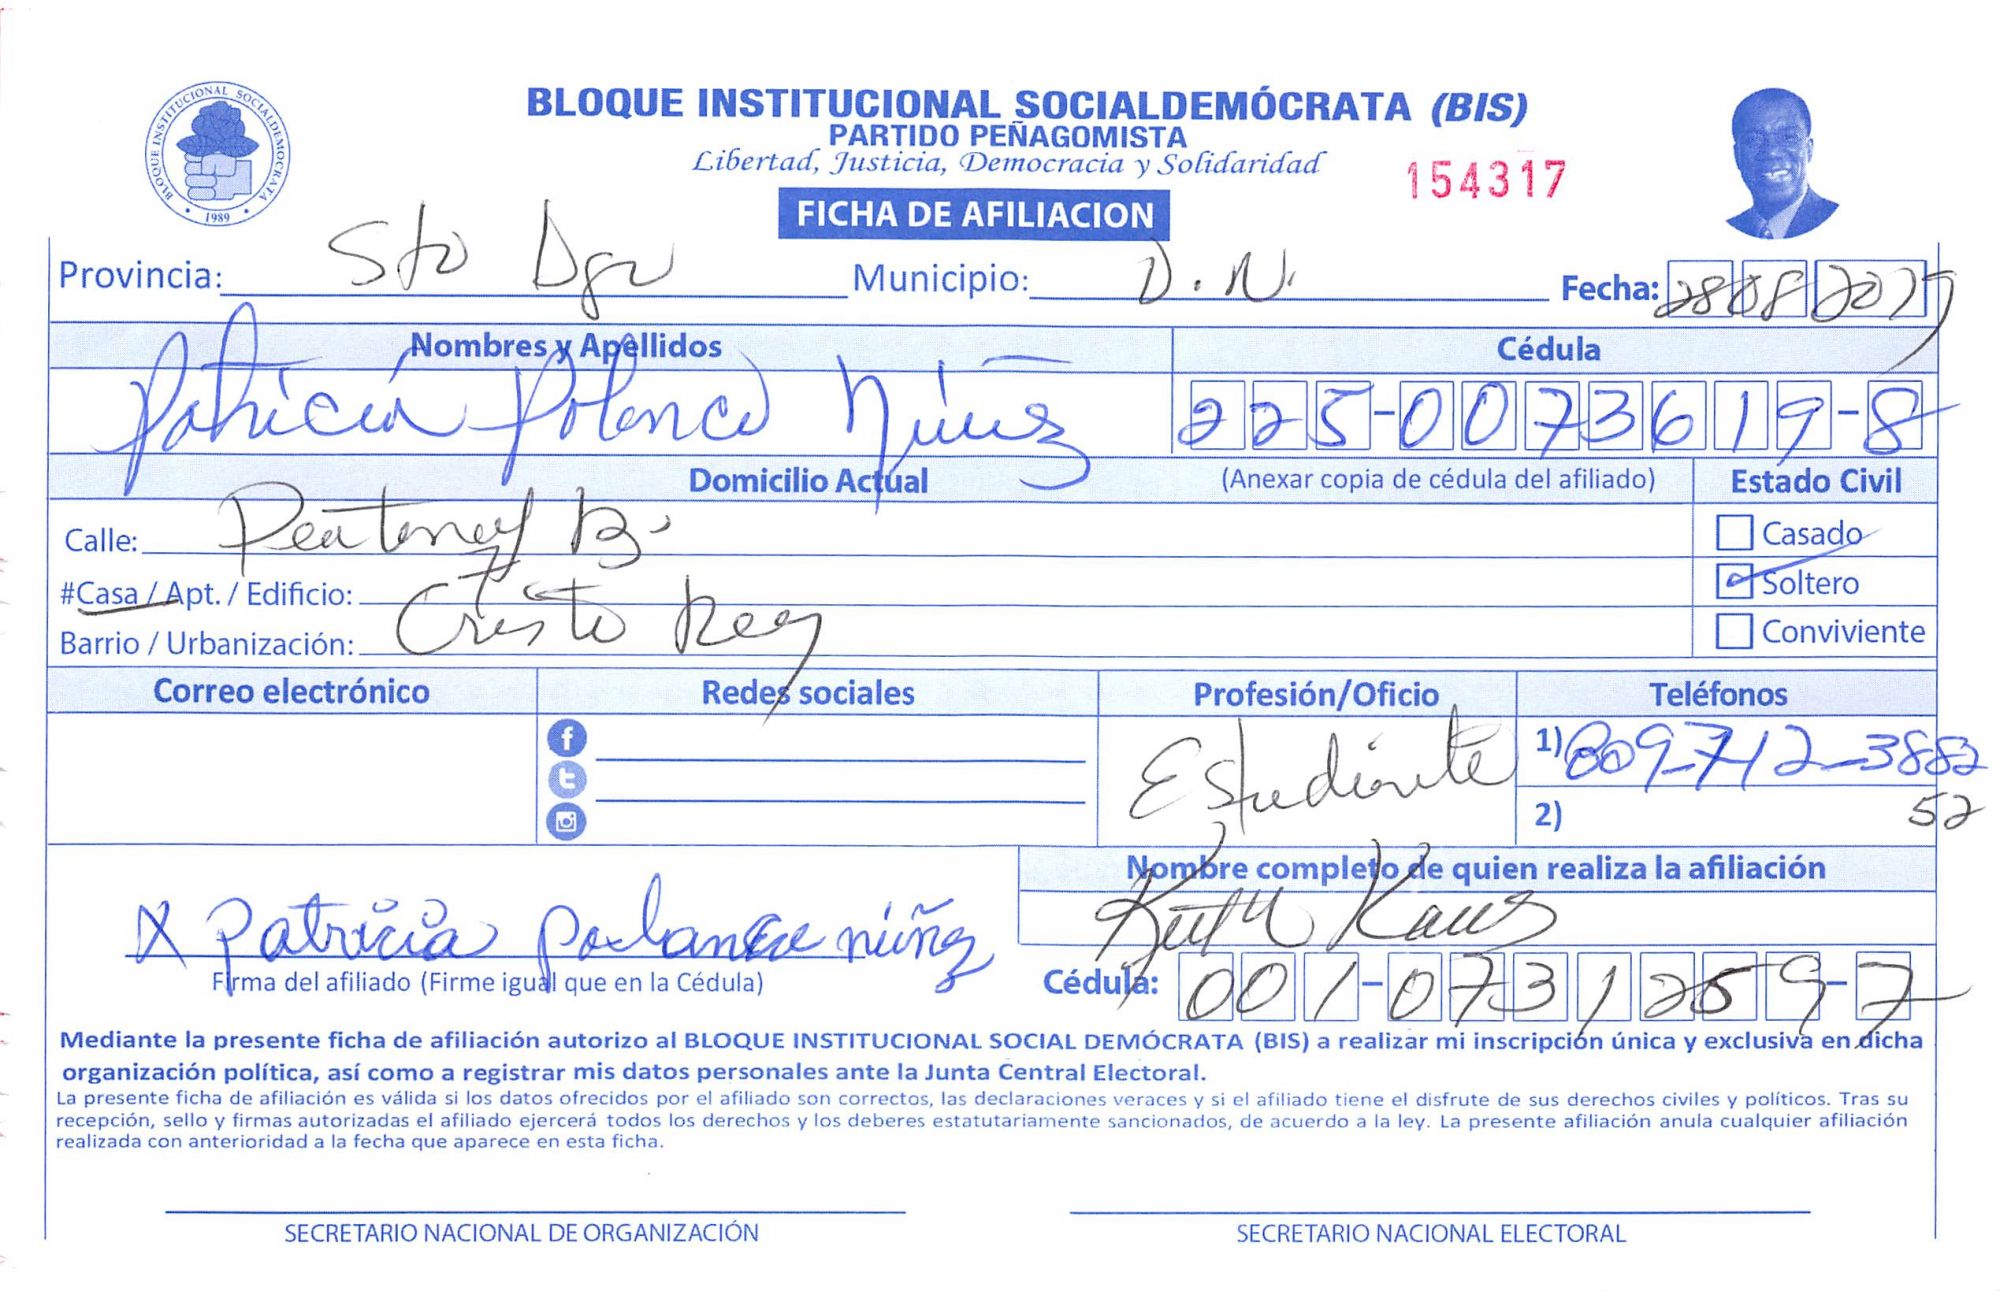 BLOQUE INSTITUCIONAL SOCIALDEMÓCRATA
1989
BLOQUE INSTITUCIONAL SOCIALDEMÓCRATA (BIS)
PARTIDO PEÑAGOMISTA
Libertad, Justicia, Democracia y Solidaridad
154317
FICHA DE AFILIACION
Provincia: Sto Dgo Municipio: D.N. Fecha: 28 08 2019
Nombres y Apellidos Cédula
Patricia Polanco Núñez 225-0073619-8
Domicilio Actual (Anexar copia de cédula del afiliado) Estado Civil
Calle: B. Casado
#Casa / Apt. / Edificio: Soltero
Barrio / Urbanización: Cristo Rey Conviviente
Correo electrónico Redes sociales Profesión/Oficio Teléfonos
Estudiante 1) 809-712-3882
2) 52
Nombre completo de quien realiza la afiliación
X Patricia polanco núñez
Firma del afiliado (Firme igual que en la Cédula) Cédula: 001-0731259-7
Mediante la presente ficha de afiliación autorizo al BLOQUE INSTITUCIONAL SOCIAL DEMÓCRATA (BIS) a realizar mi inscripción única y exclusiva en dicha
organización política, así como a registrar mis datos personales ante la Junta Central Electoral.
La presente ficha de afiliación es válida si los datos ofrecidos por el afiliado son correctos, las declaraciones veraces y si el afiliado tiene el disfrute de sus derechos civiles y políticos. Tras su
recepción, sello y firmas autorizadas el afiliado ejercerá todos los derechos y los deberes estatutariamente sancionados, de acuerdo a la ley. La presente afiliación anula cualquier afiliación
realizada con anterioridad a la fecha que aparece en esta ficha.
SECRETARIO NACIONAL DE ORGANIZACIÓN SECRETARIO NACIONAL ELECTORAL